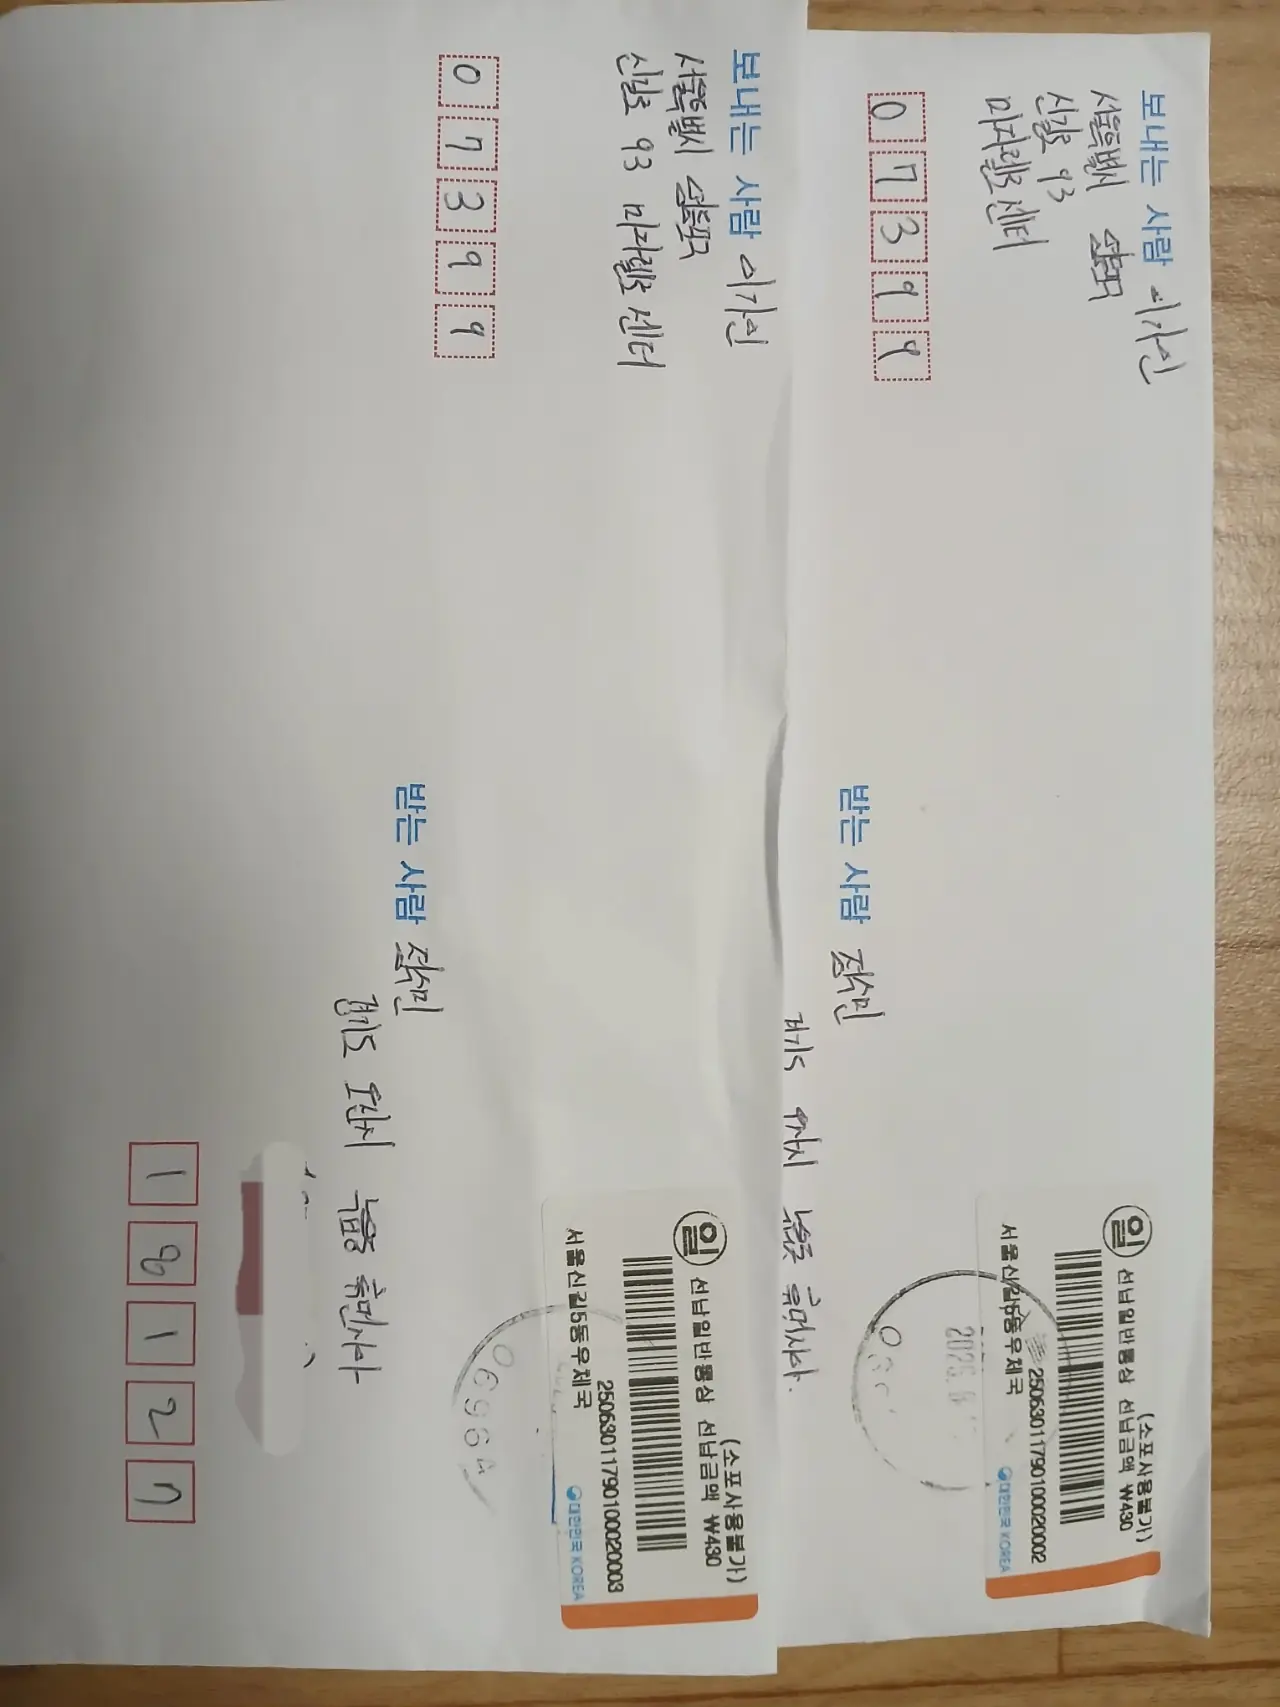 보내는 사람 이가인
서울특별시 영등포구
신길로 93 마자렐로 센터
0 7 3 9 9
(소포사용불가)
일 선납일반통상 선납금액 ₩430
25063011790100020003
서울신길5동우체국
대한민국 KOREA
06964
받는 사람 조수민
경기도 오산시
1 8 1 2 7
보내는 사람 이가인
서울특별시 영등포구
신길로 93
마자렐로 센터
0 7 3 9 9
(소포사용불가)
일 선납일반통상 선납금액 ₩430
25063011790100020002
서울신길5동우체국
대한민국 KOREA
받는 사람 조수민